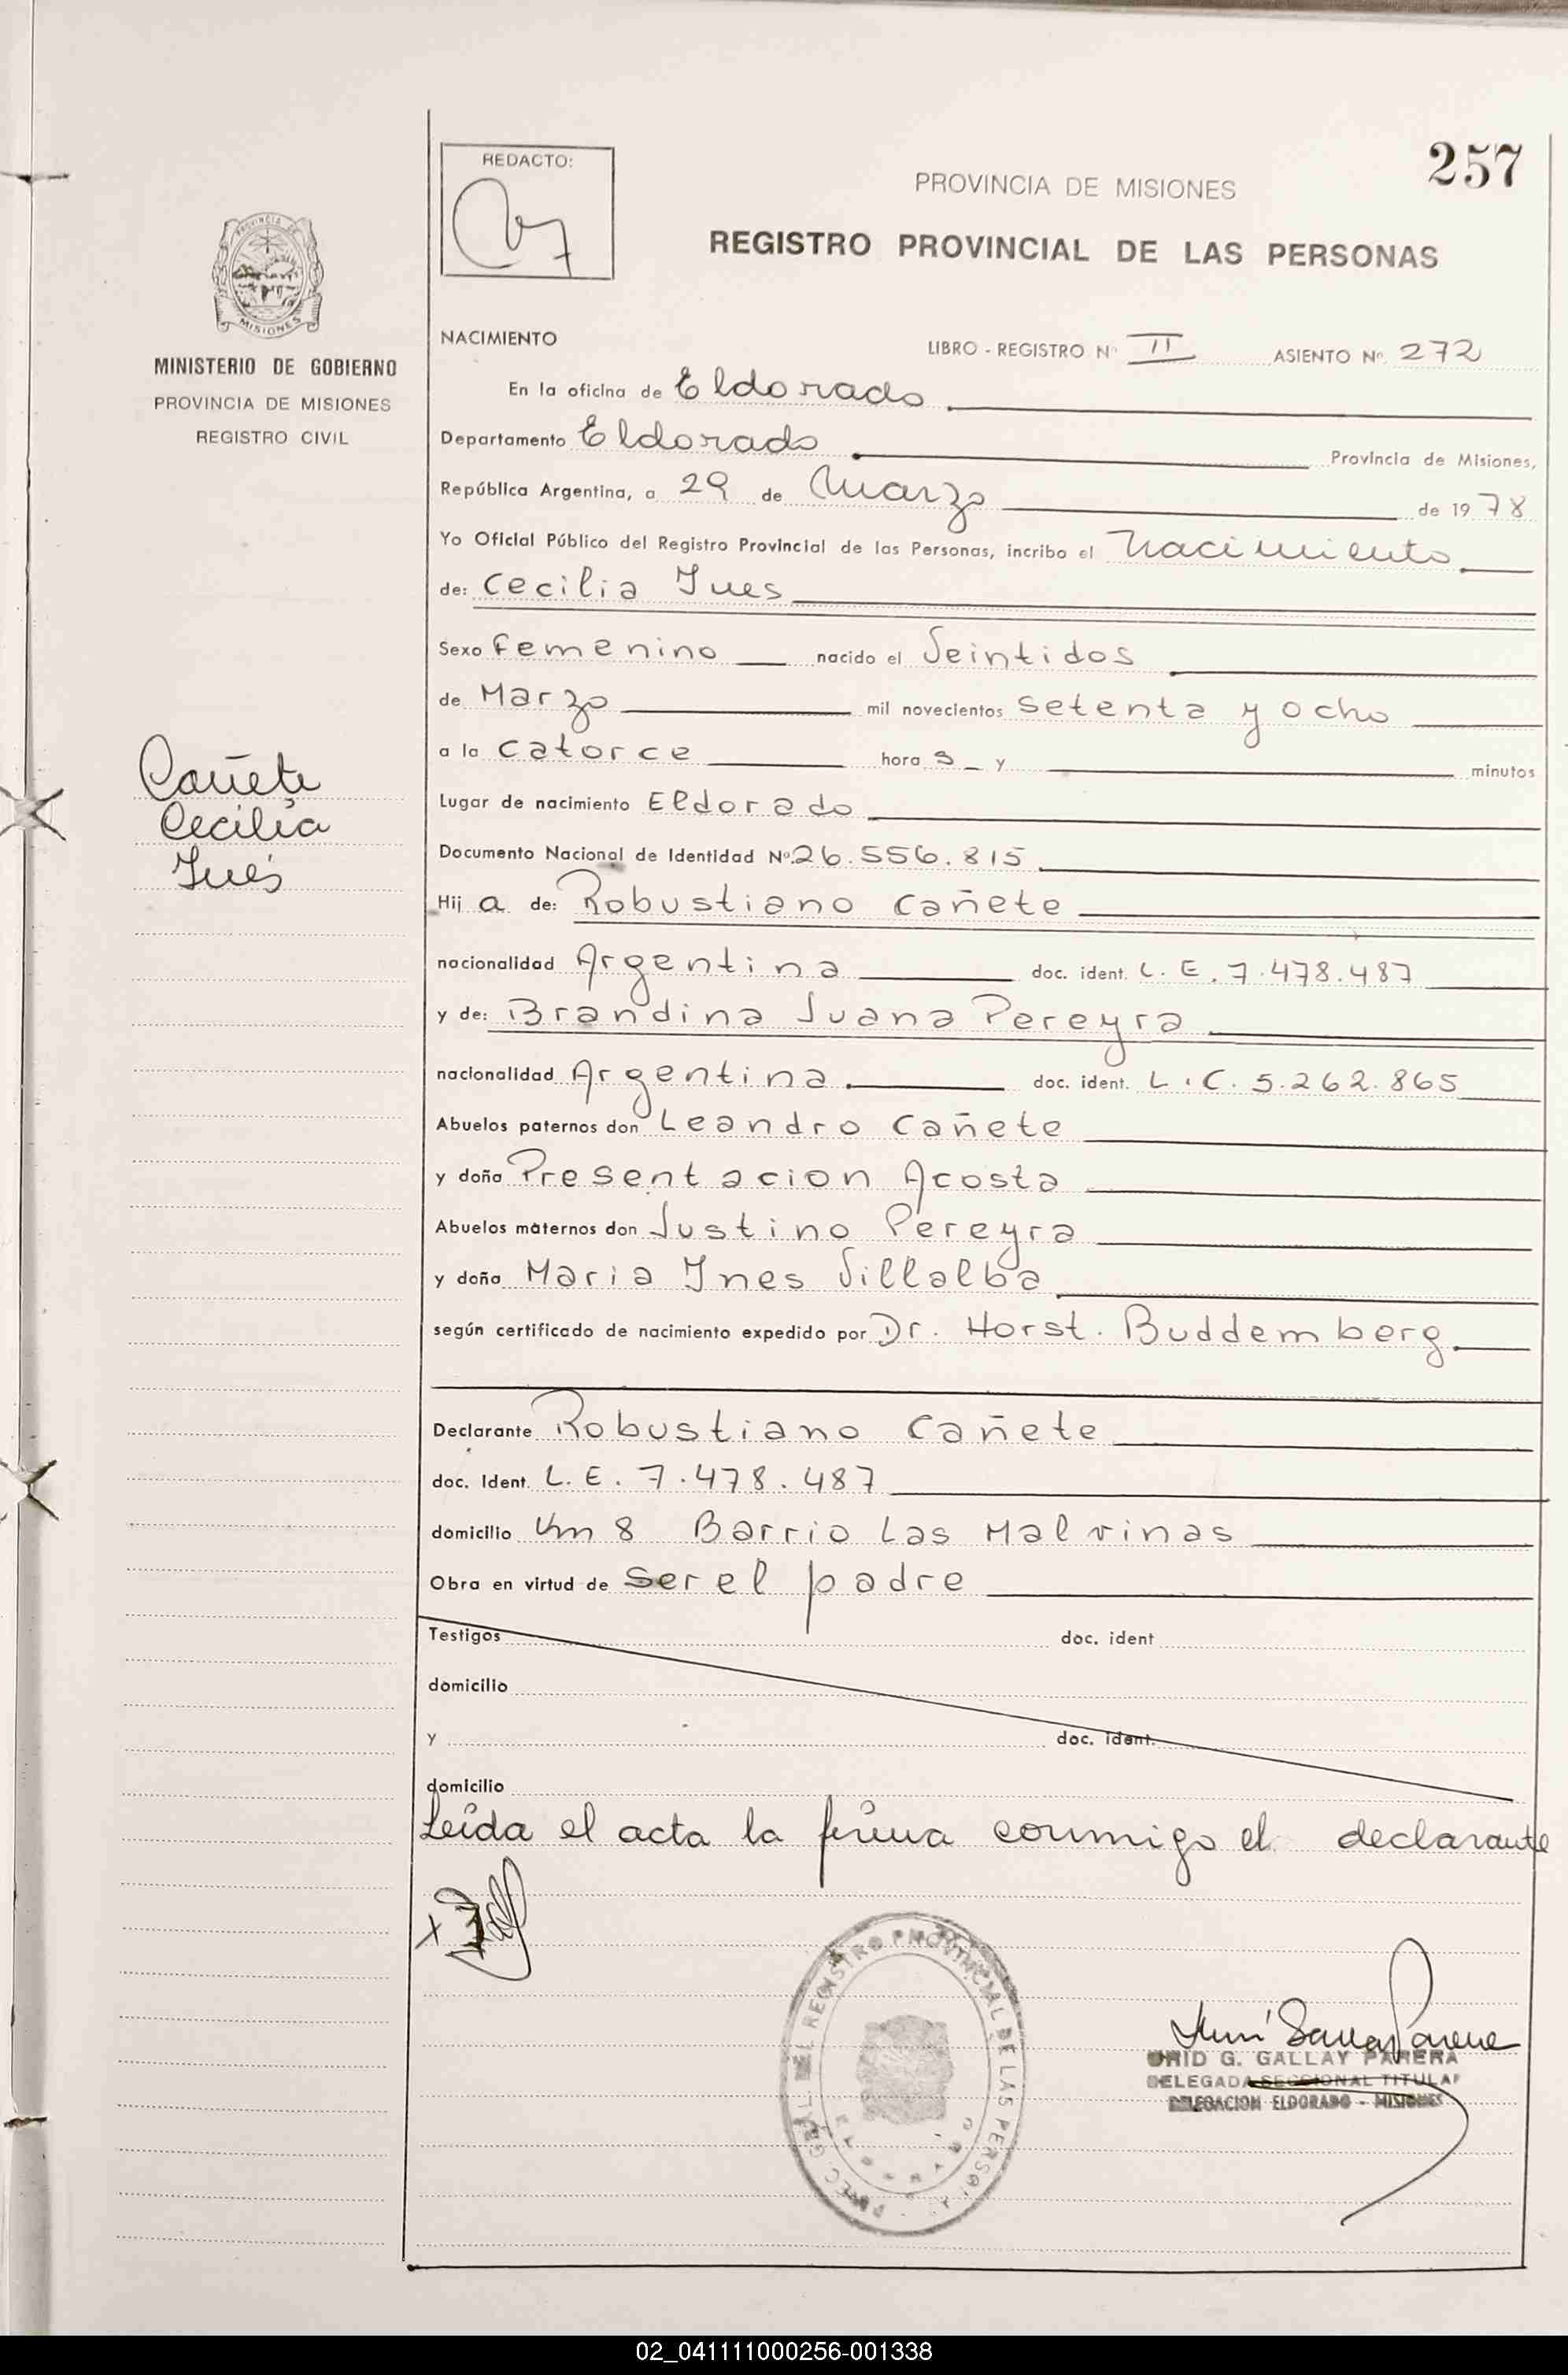 257
REDACTO:
PROVINCIA DE MISIONES
REGISTRO PROVINCIAL DE LAS PERSONAS
PROVINCIA DE
MISIONES
MINISTERIO DE GOBIERNO
PROVINCIA DE MISIONES
REGISTRO CIVIL
Cañete
Cecilia
Inés
NACIMIENTO
LIBRO - REGISTRO Nº II ASIENTO Nº 272
En la oficina de Eldorado
Departamento Eldorado Provincia de Misiones,
República Argentina, a 29 de Marzo de 1978
Yo Oficial Público del Registro Provincial de las Personas, incribo el Nacimiento
de: Cecilia Ines
Sexo Femenino nacido el Veintidos
de Marzo mil novecientos setenta y ocho
a la catorce hora s y minutos
Lugar de nacimiento Eldorado
Documento Nacional de Identidad Nº 26.556.815
Hij a de: Robustiano Cañete
nacionalidad Argentina doc. ident. L.E. 7.478.487
y de: Brandina Juana Pereyra
nacionalidad Argentina. doc. ident. L.C. 5.262.865
Abuelos paternos don Leandro Cañete
y doña Presentacion Acosta
Abuelos maternos don Justino Pereyra
y doña Maria Ines Villalba
según certificado de nacimiento expedido por Dr. Horst. Buddemberg.
Declarante Robustiano Cañete
doc. Ident. L.E. 7.478.487
domicilio Km 8 Barrio Las Malvinas
Obra en virtud de ser el padre
Testigos doc. ident
domicilio
y doc. ident.
domicilio
Leída el acta la firma conmigo el declarante
REGISTRO PROVINCIAL DE LAS PERSONAS
G. GALLAY PARERA
DELEGADA SECCIONAL TITULAR
DELEGACION ELDORADO - MISIONES
02_041111000256-001338